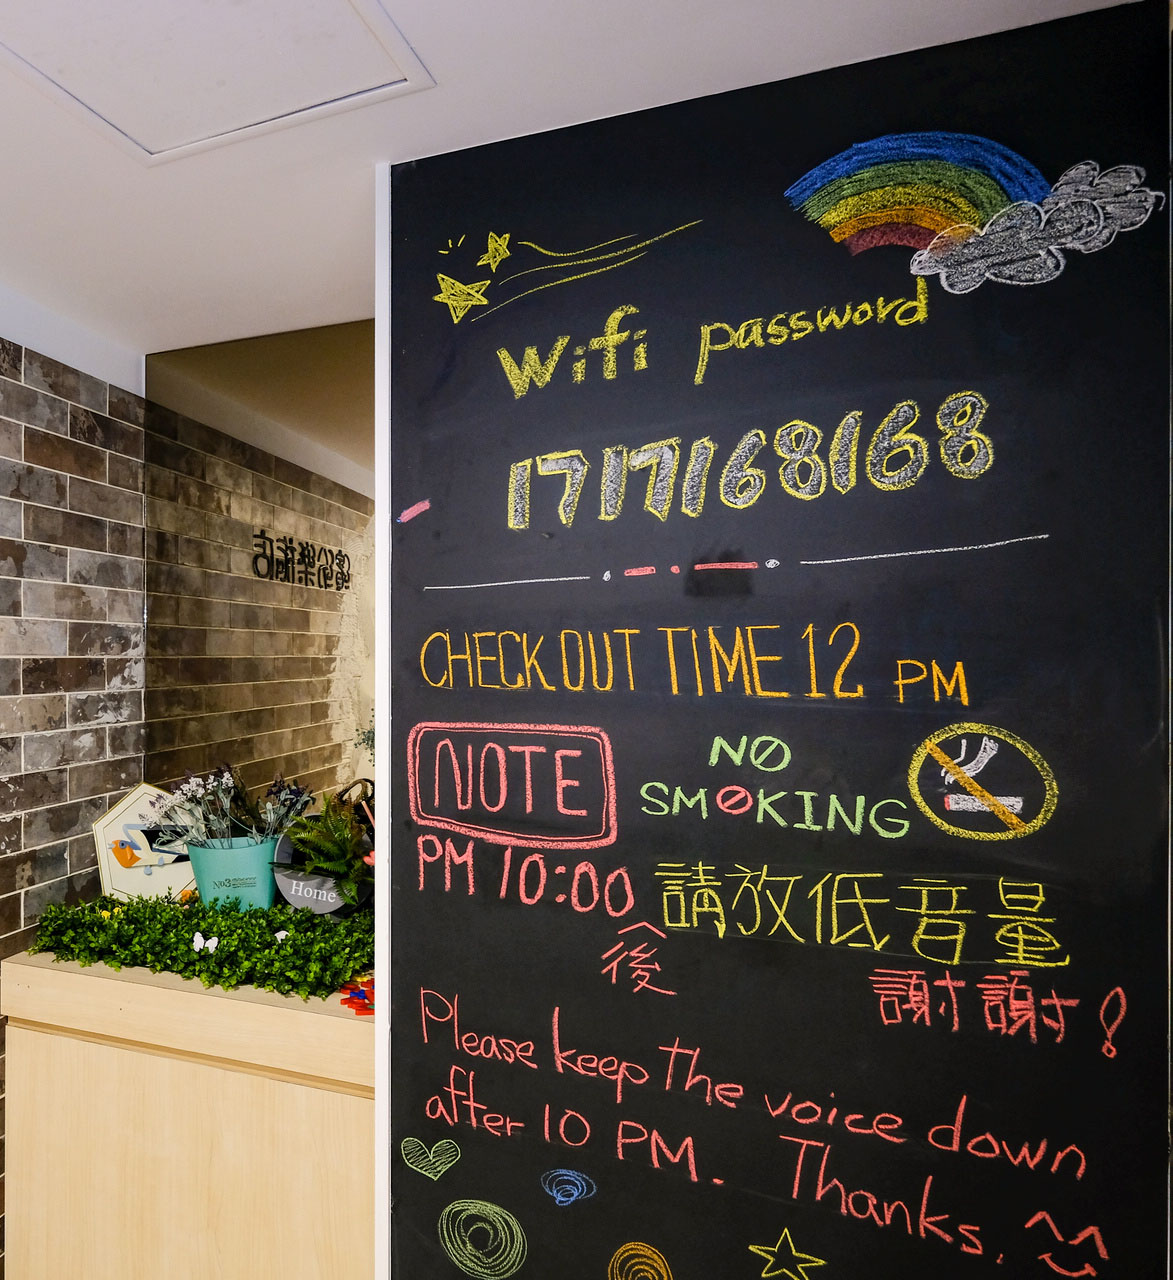 Wifi password
1717168168
CHECK OUT TIME 12 PM
NOTE
NO
SMOKING
PM 10:00 請放低音量
後
謝謝!
Please keep the voice down
after 10 PM. Thanks.
No3
Home